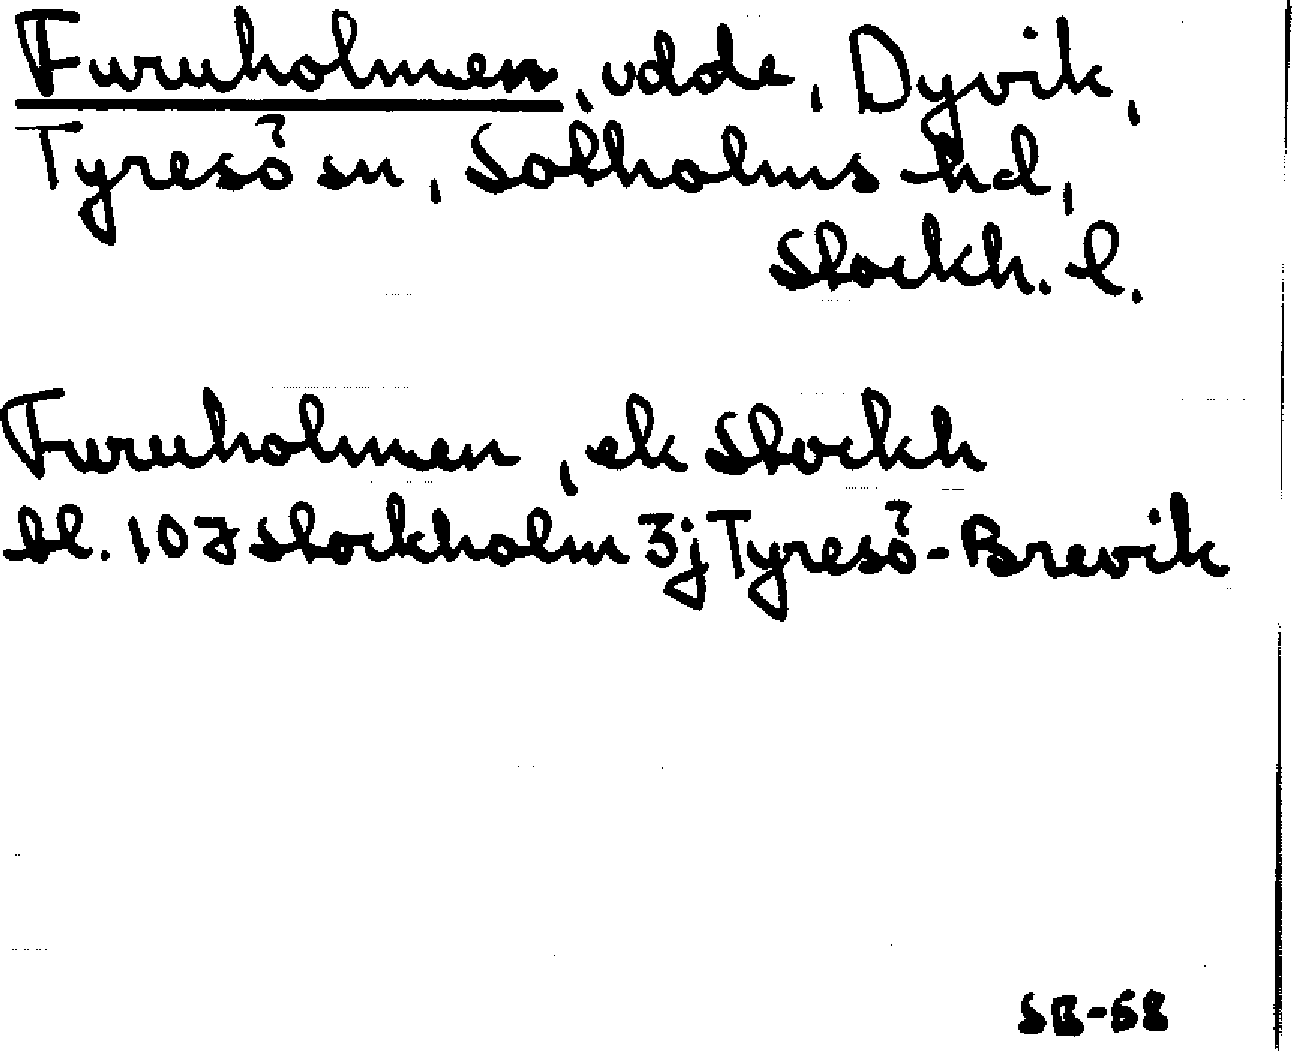 Furuholmen, udde, Dyvik,
Tyresö sn, Sotholms hd,
Stockh. l.
Furuholmen, ek Stockh
bl. 107 Stockholm 3j Tyresö-Brevik
SB-68